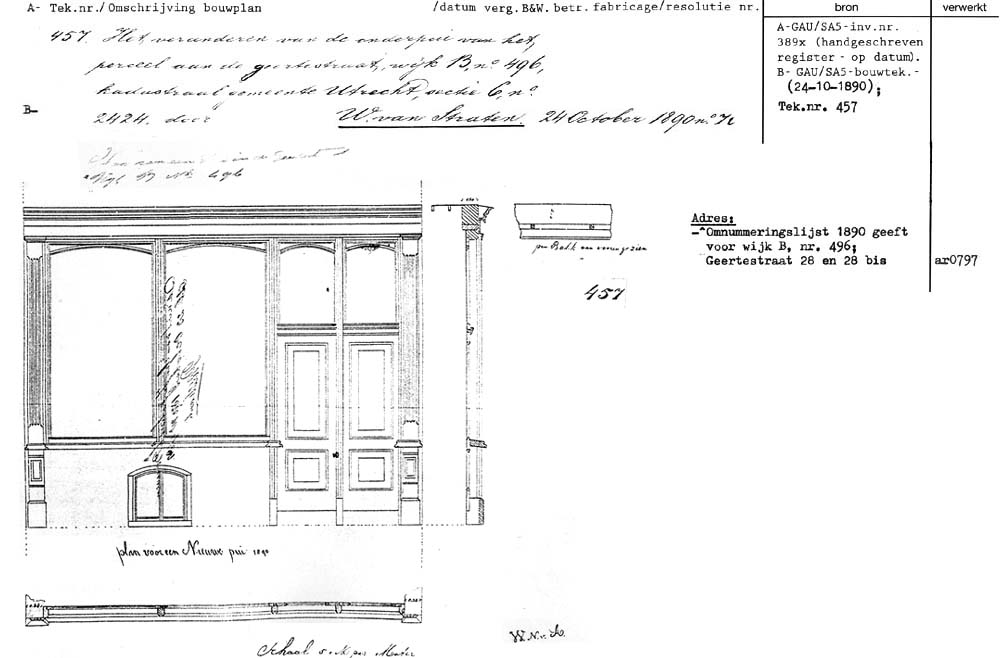 A- Tek.nr./Omschrijving bouwplan /datum verg.B&W.betr.fabricage/resolutie nr.
bron
verwerkt
457. Het veranderen van de onderpui van het,
perceel aan de geertestraat, wijk B, no 496,
kadastraal gemeente Utrecht, sectie C, no
B-
2424. door W. van Straten. 24 October 1890 no
A-GAU/SA5-inv.nr.
389x (handgeschreven
register - op datum).
B- GAU/SA5-bouwtek.-
(24-10-1890);
Tek.nr. 457
Wijk B No 496
Adres:
-^Omnummeringslijst 1890 geeft
voor wijk B, nr. 496;
Geertestraat 28 en 28 bis
ar0797
457
plan voor een Nieuwe pui 1890
Schaal per Meter